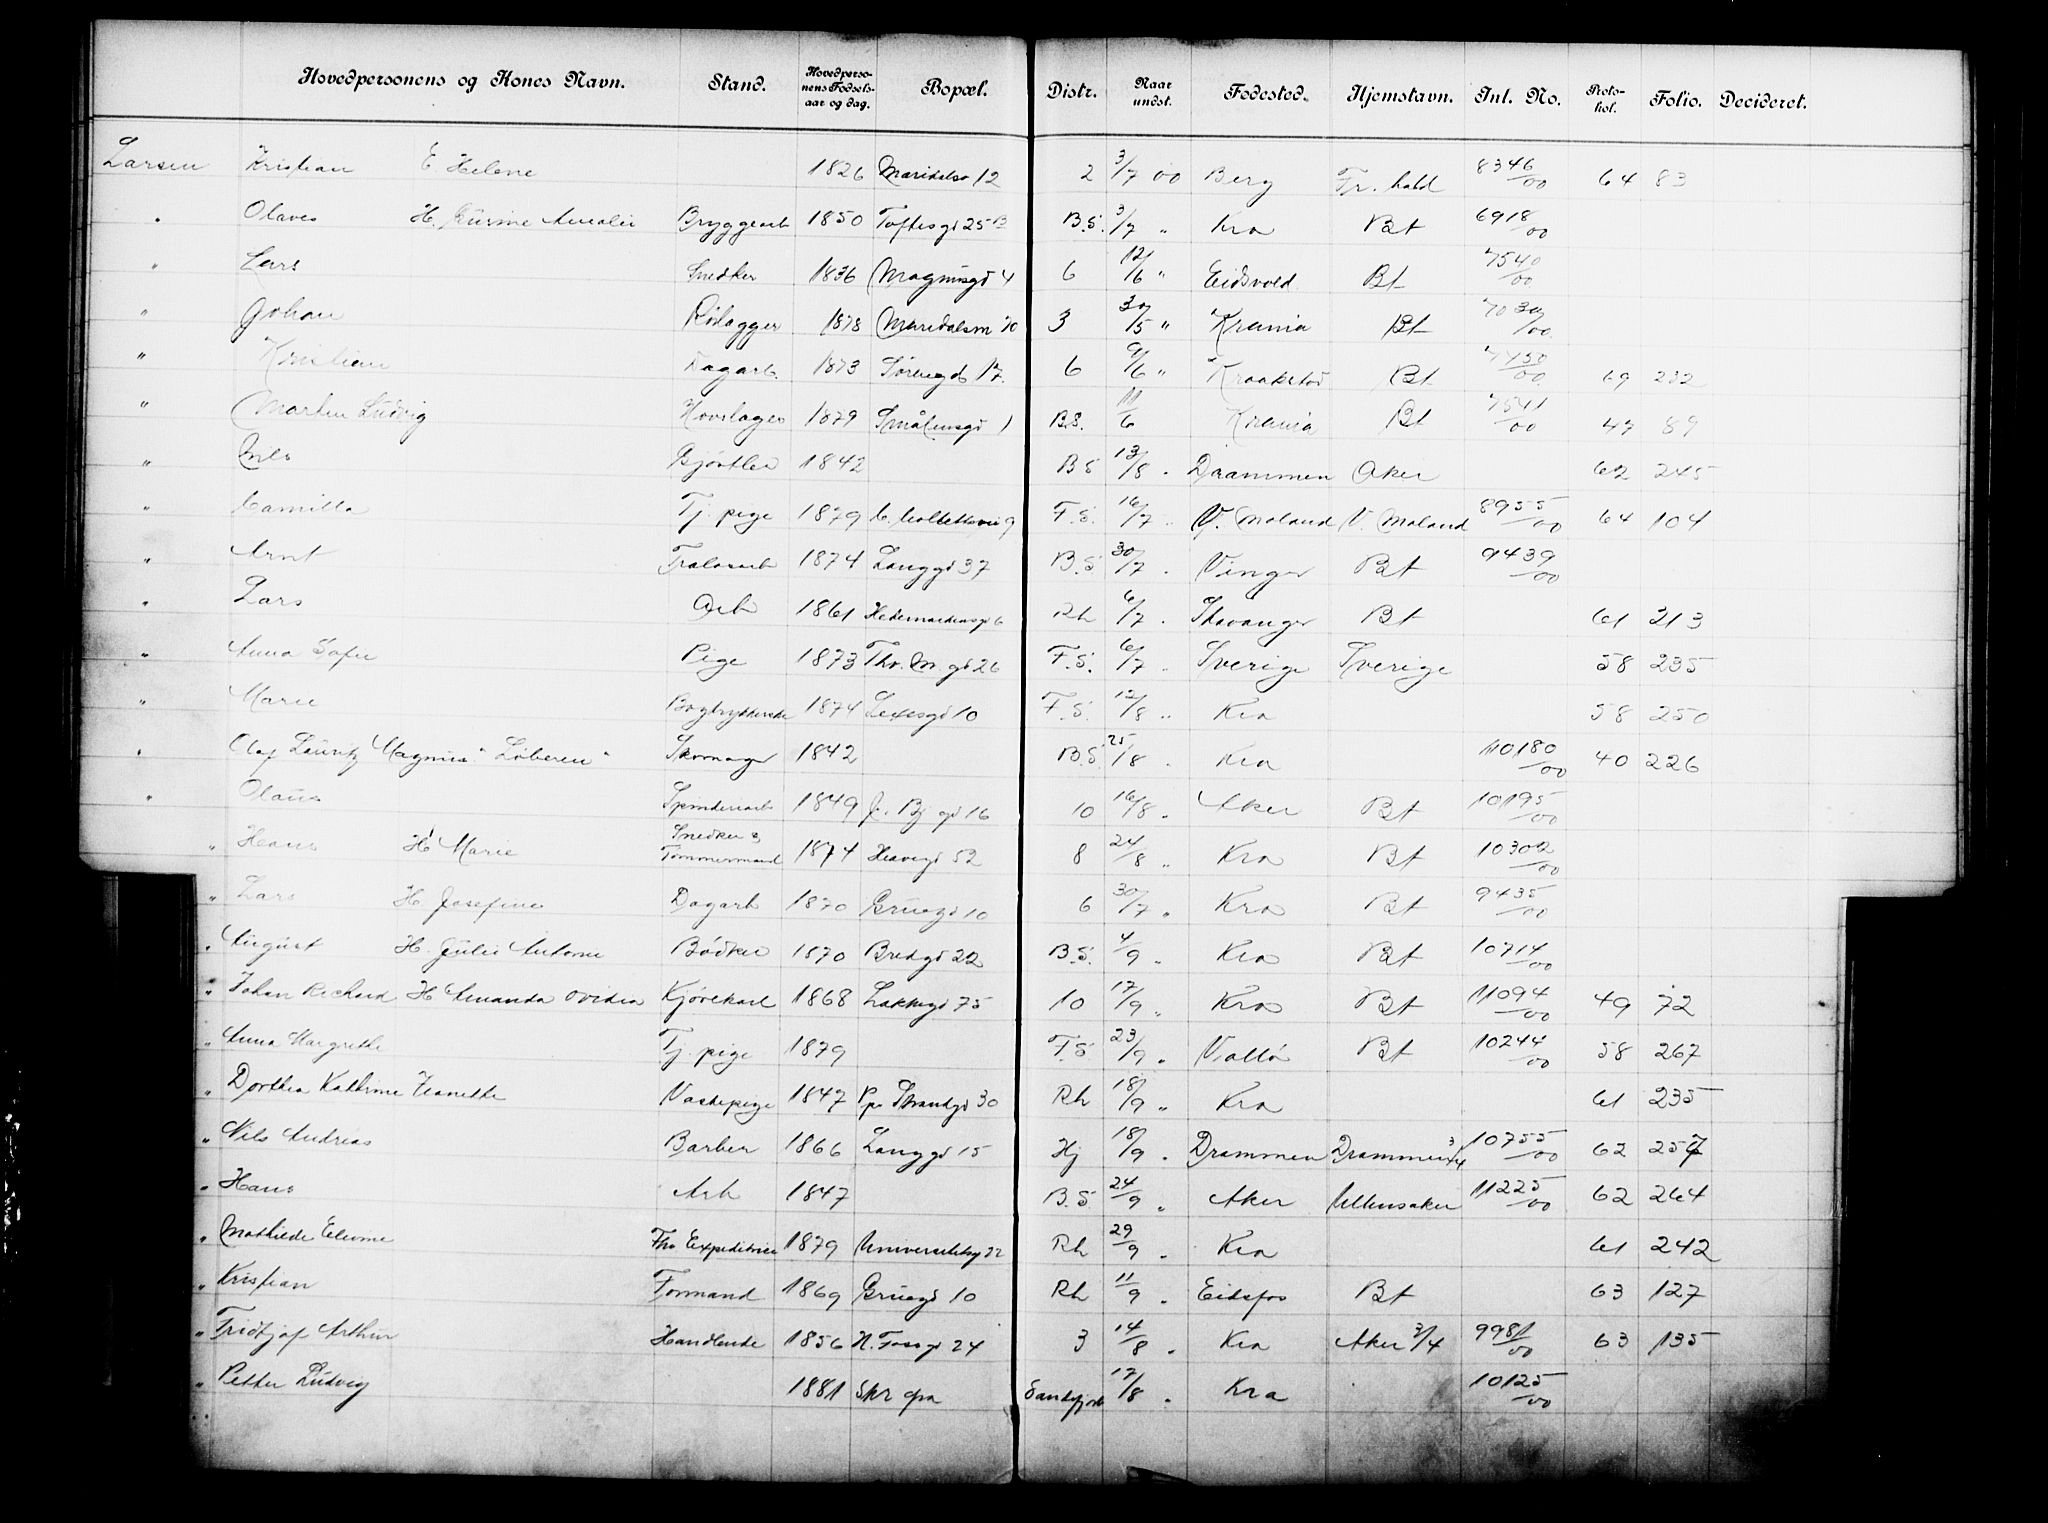 Hovedpersonens og Kones Navn. Stand. Hovedpersonens Fødselsaar og dag. Bopæl. Distr. Naar undst. Fødested. Hjemstavn. Inl. No. Protokol. Folio. Decideret.
Larsen Kristian E. Helene 1826 Maridalsv 12 2 3/7 00 Berg Fr. hald 8346/00 64 83
" Olaves H. Amalie Bryggearb 1850 Toftesgd 25 B B.S. 3/7 " Kra Bt 6918/00
" Lars Snedker 1836 Magnusgd 4 6 12/6 " Eidsvold Bt 7540/00
" Johan Rørlægger 1878 Maridalsv 70 3 30/5 " Krania Bt 7030/00
" Kristian Dagarb. 1873 Sørengd 17. 6 9/6 " Kraakstad Bt 7450/00 69 232
" Martin Ludvig Hovslager 1879 Smålensgd 1 B.S. 11/6 Krania Bt 7541/00 47 89
" Nils Gjørtler 1842 B S 13/8 " Drammen Aker 62 245
" Camilla Tj. pige 1879 C. Colbettsvei 9 F.S. 16/7 " V. Moland V. Moland 8955/00 64 104
" Arnt Tralasarb 1874 Langgd 37 B.S 30/7 " Vinger Bt 9439/00
" Lars Arb 1861 Hedemarkensgd 6 Rh 6/7 " Stavanger Bt 61 213
" Anna Sofie Pige 1873 Thv. M. gd 26 F.S. 6/7 " Sverige Sverige 58 235
" Marie Bogtrykkerske 1874 10 F.S. 12/8 " Kra 58 250
" Olaf Lauritz Magnus "Løberen" Skomager 1842 B.S. 25/8 " Kra 10180/00 40 226
" Olaus Spinderiarb 1849 J. Bj gd 16 10 16/8 " Aker Bt 10195/00
" Hans H. Marie Snedker & Tømmermand 1874 52 8 24/8 " Kra Bt 10302/00
" Lars H. Josefine Dagarb 1870 Grüngd 10 6 30/7 " Kra Bt 9435/00
" August H. Julie Antonie Bødker 1870 Bredgd 22 B.S. 4/9 " Kra Bt 10714/00
" Johan Richard H. Amanda Ovidia Kjørekarl 1868 Lakkegd 75 10 17/9 " Kra Bt 11094/00 49 72
" Anna Margrethe Tj. pige 1879 F.S 23/9 " Valløi Bt 10244/00 58 267
" Dorthea Kathrine Jeanette Vaskepige 1847 Pp. Strandgd 30 Rh 18/9 " Kra 61 235
" Nils Andreas Barber 1866 Langgd 15 Hj 18/9 " Drammen Drammen 3/4 10755/00 62 257
" Hans Arb 1847 B.S. 24/9 " Aker Ullensaker 11225/00 62 264
" Mathilde Elvine Fhv Expeditrice 1879 Universitetsg 22 Rh 29/9 " Kra 61 242
" Kristian Formand 1869 Grüngd 10 Rh 11/9 " Eidsfos Bt 63 127
" Fridtjof Arthur Handlende 1856 N. Fossgd 24 3 14/8 " Kra Aker 3/4 9981/00 63 135
" Petter Ludvig 1881 Skr Sandefjord 17/8 " Kra 10125/00